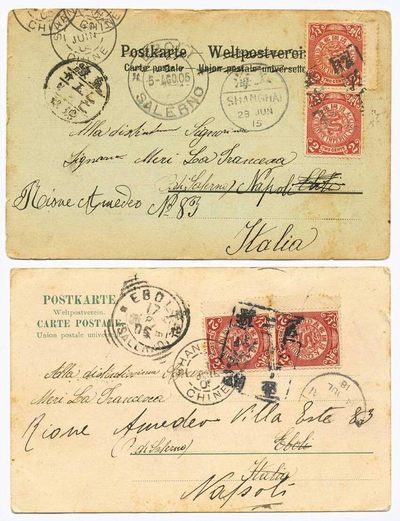 SHANGHAI
CHINE
JUIN
Postkarte
Weltpostverein
Carte postale
Union postale universelle
5-AGO.05
SALERNO
SHANGHAI
28 JUN
上海
Alla distintissima Signorina
Signorina Meri La Francesca
(di Salerno) Napoli Eboli
Rione Amedeo No 83
Italia
POSTKARTE
Weltpostverein.
CARTE POSTALE
Union postale universelle
EBOLI
(SALERNO)
SHANGHAI
CHINE
Alla distintissima
Meri La Francesca
Rione Amedeo Villa Este 83
(di Salerno)
Eboli
Italia
Napoli